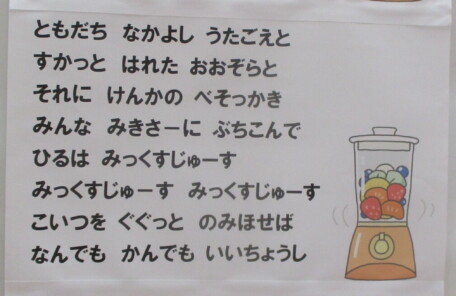 ともだち なかよし うたごえと
すかっと はれた おおぞらと
それに けんかの べそっかき
みんな みきさーに ぶちこんで
ひるは みっくすじゅーす
みっくすじゅーす みっくすじゅーす
こいつを ぐぐっと のみほせば
なんでも かんでも いいちょうし